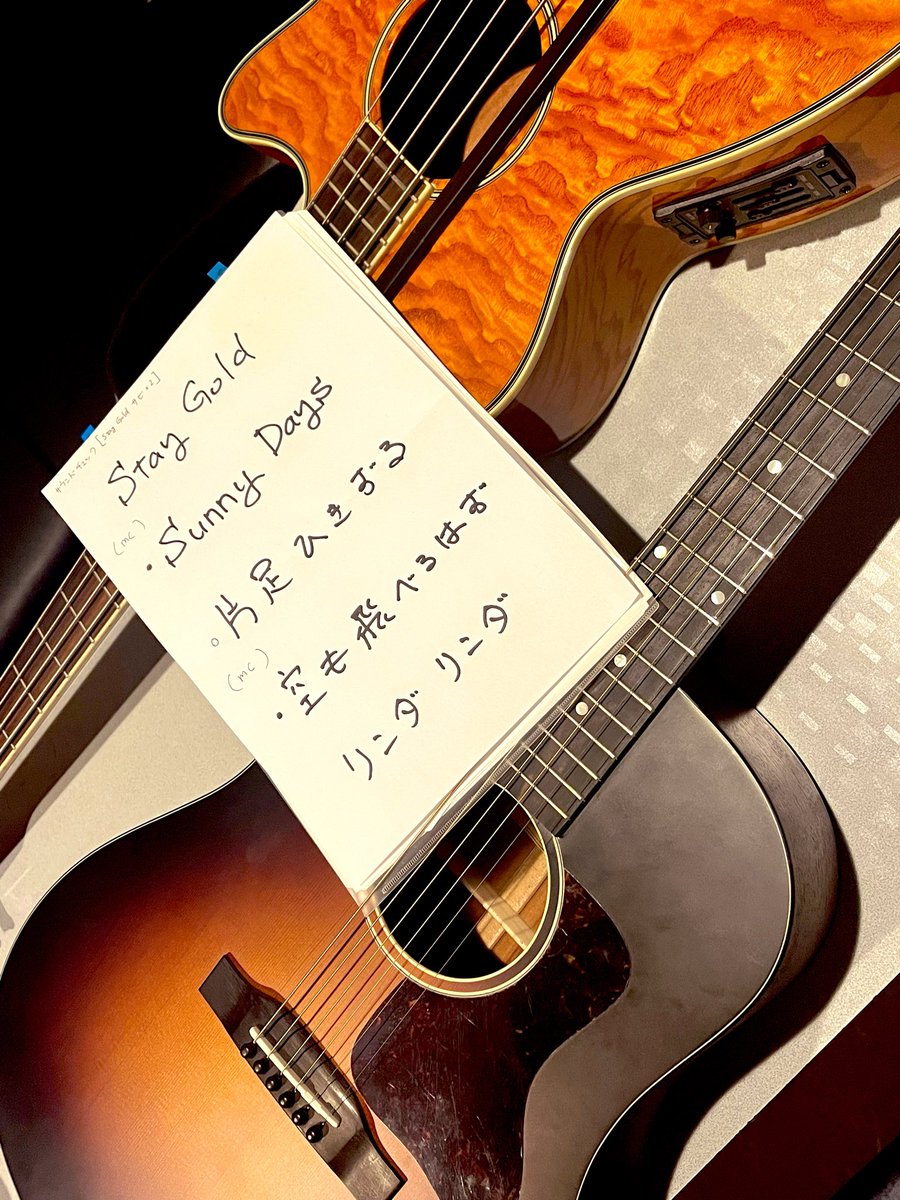 サウンドチェック [Stay Gold サビ×2]
Stay Gold
(mc)
・Sunny Days
・片足ひきずる
(mc)
・空も飛べるはず
リンダ リンダ